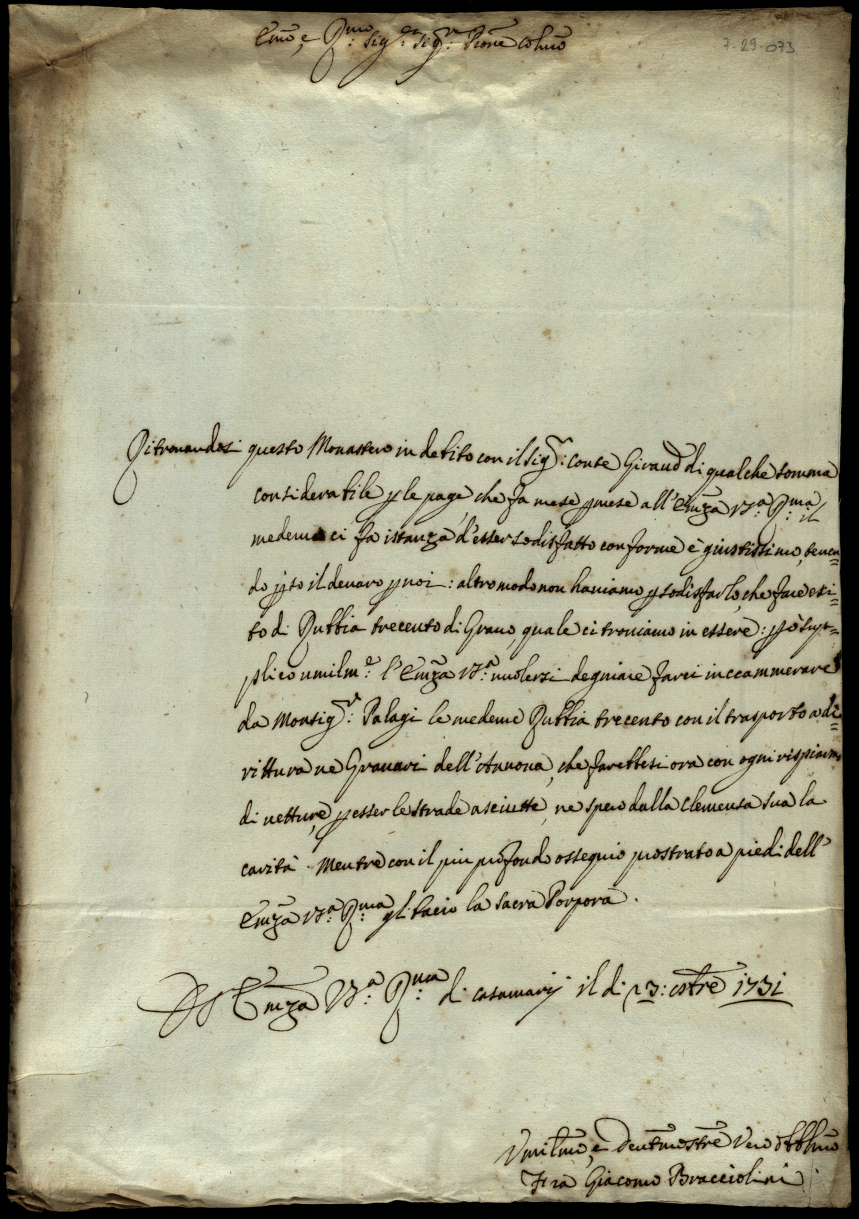 Emõ, e Rmo: Sigr: Sigr: Prone Colmõ
7-29-073
Ritrovandosi questo Monastero in debito con il Sigr: Conte Giraud di qualche somma
considerabile p le page che fa mese p mese all'Emza Va: Rma: il
medemo ci fa istanza d'esser sodisfatto conforme è giustissimo, tenen=
do pto il denaro p noi: altro modo non haviamo p sodisfarlo, che fare esi=
to di Rubbia trecento di Grano, quale ci troviamo in essere: pò sup=
plico umilme: l'Emza Va: volersi degniare farci inccammerare
da Monsigr: Palagi le medeme Rubbia trecento con il trasporto a di=
rittura ne Granari dell'Annona, che farebbesi ora con ogni rispiarmo
di vetture, p esser le strade asciutte, ne spero dalla Clemensa sua la
carità. Mentre con il piu profondo ossequio prostrato a piedi dell'
Emza Va: Rma: gli bacio la Sacra Porpora.
Emza Va: Rma: di Casamarij il di 13: 1731
Umilmõ, e Servõ Obblmõ
Fra Giacomo Bracciolini